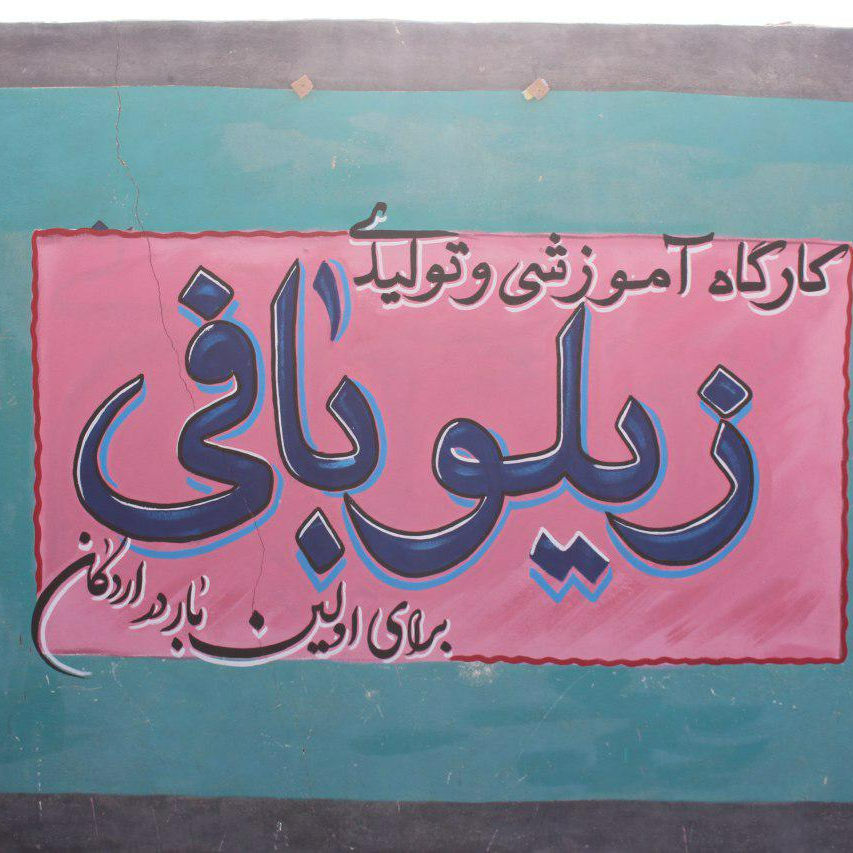 کارگاه آموزشی و تولیدی
زیلو بافی
برای اولین بار در اردکان